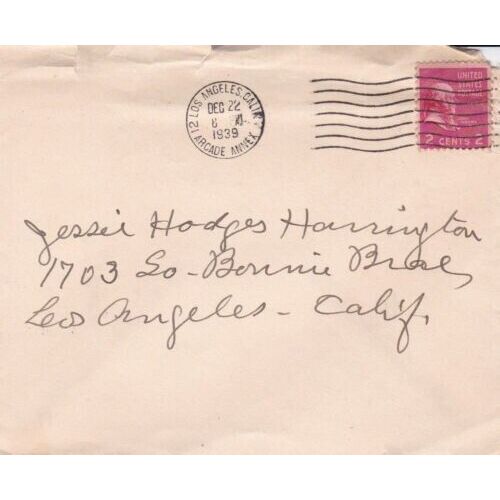 LOS ANGELES, CALIF.
DEC 22
1939
12 ARCADE ANNEX
UNITED
STATES
2 CENTS 2
Jessie Hodges Harrington
1703 So - Bonnie Brae,
Los Angeles - Calif.